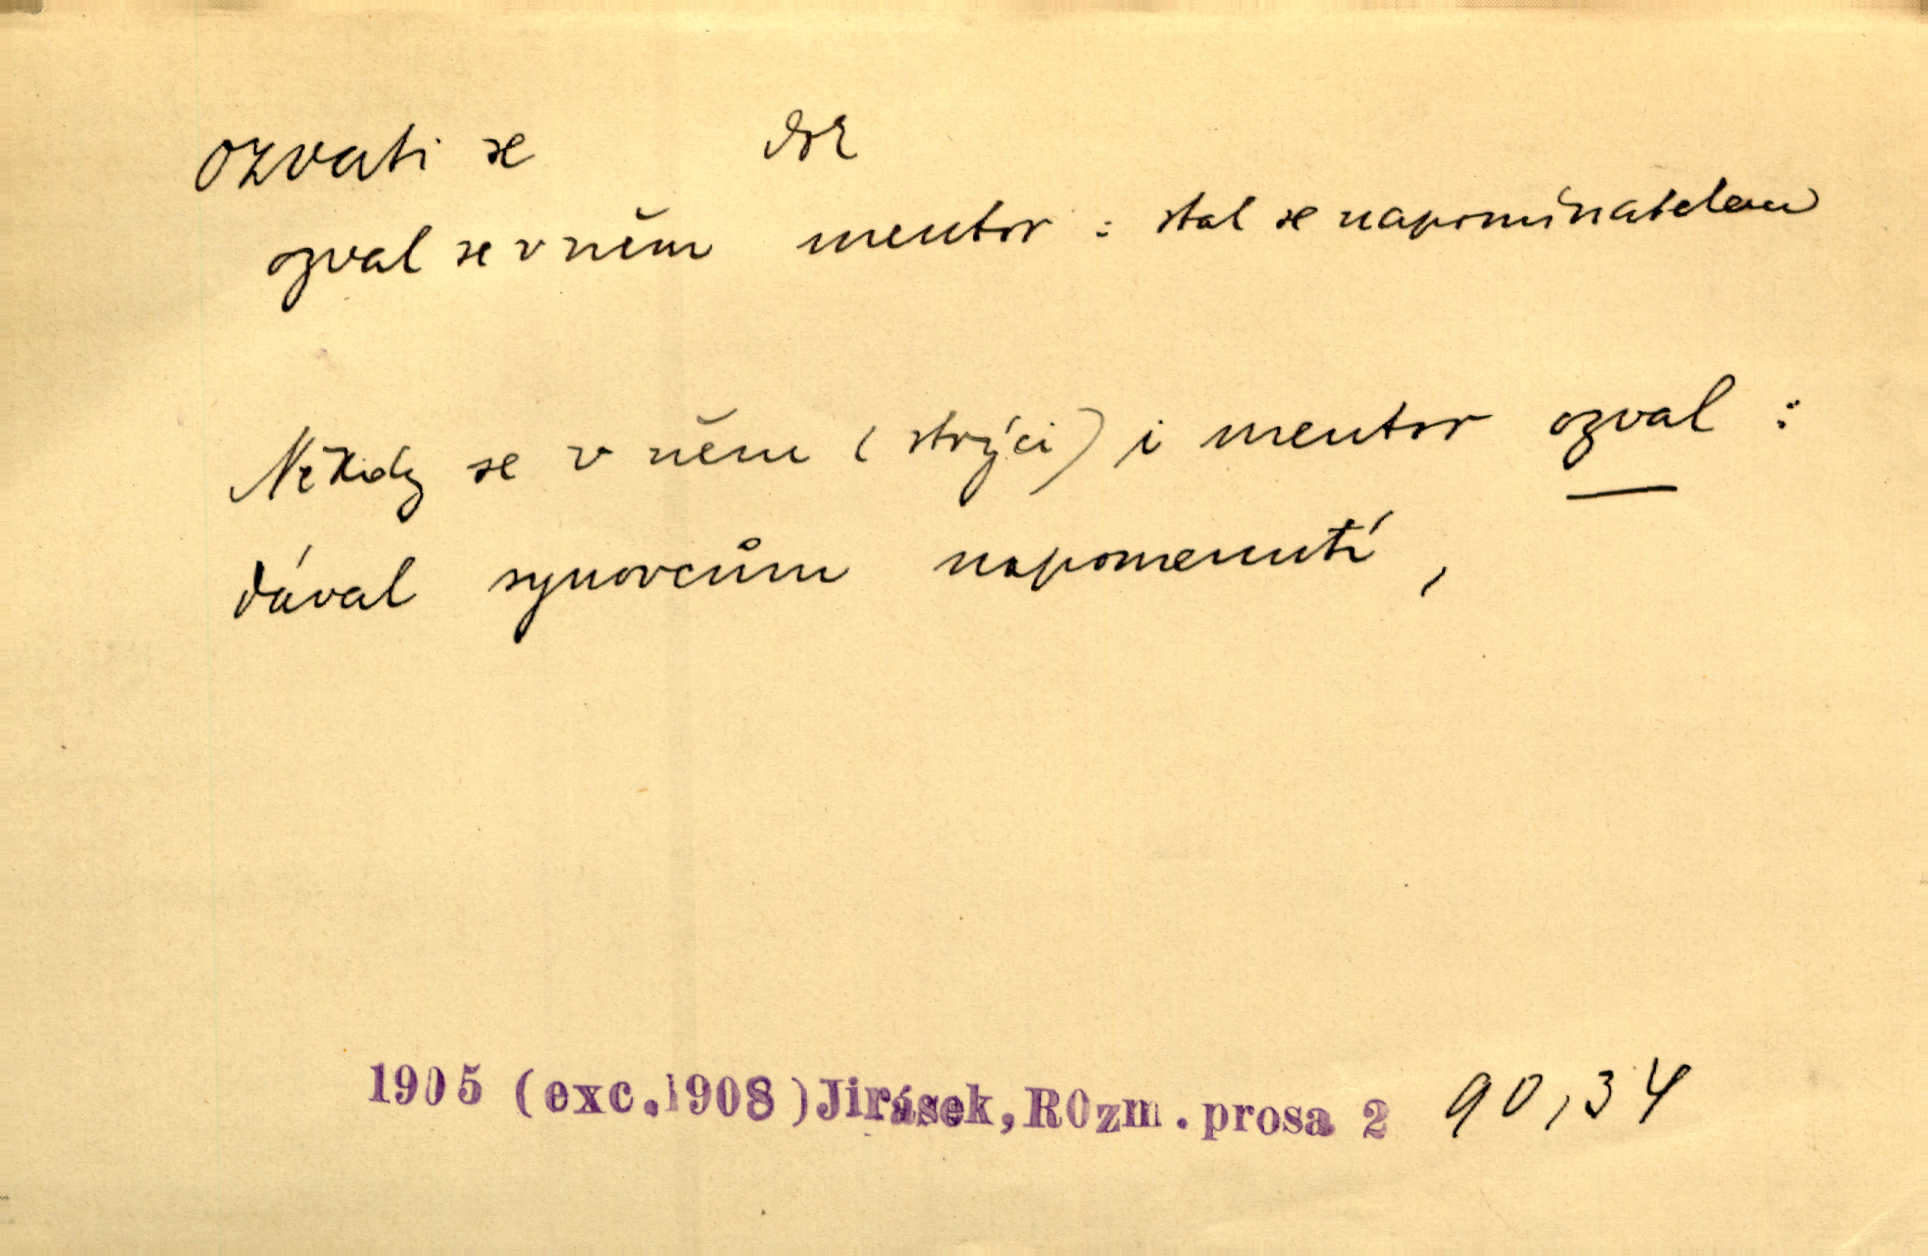 ozvati se
ozval se v něm mentor : stal se napomínatelem
Někdy se v něm (strýci) i mentor ozval :
dával synovcům napomenutí,
1905 (exc.1908)Jirásek,ROzm.prosa 2 90,34